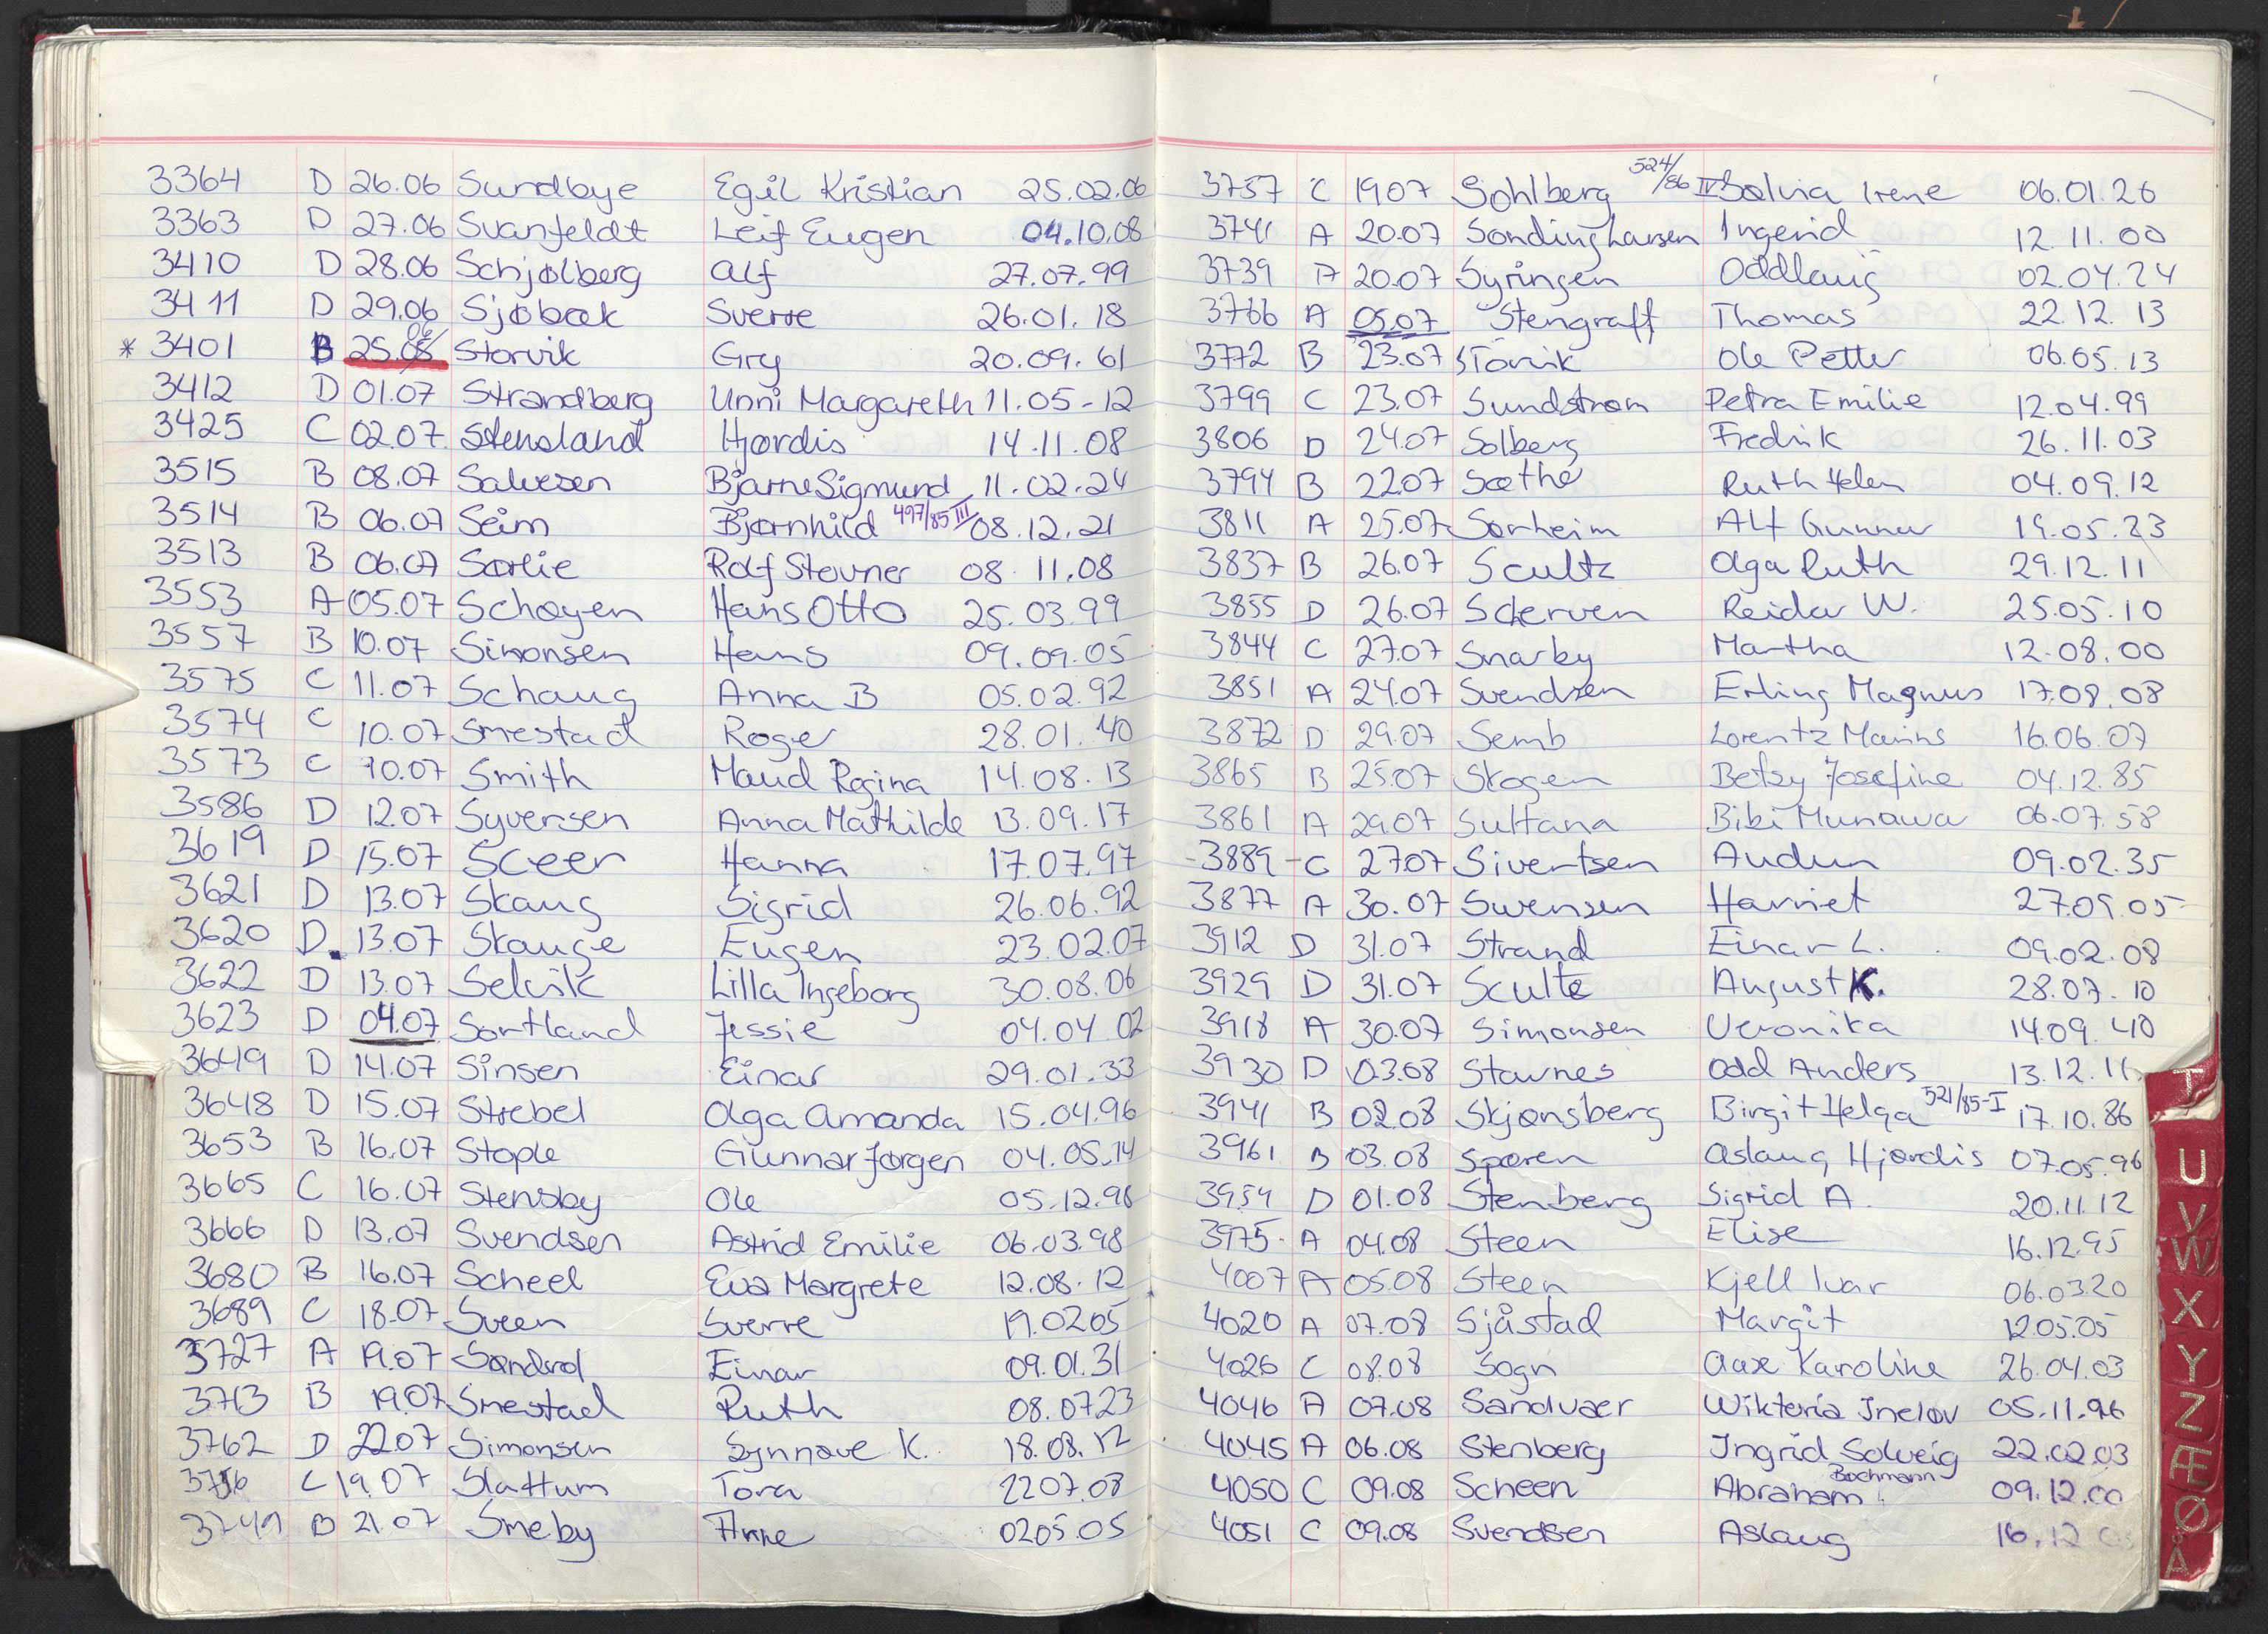 3364 D 26.06 Sundbye Egil Kristian 25.02.06
3363 D 27.06 Svanfeldt Leif Eugen 04.10.08
3410 D 28.06 Schjølberg Alf 27.07.99
3411 D 29.06 Sjøbæk Sverre 26.01.18
* 3401 B 25.06 Storvik Gry 20.09.61
3412 D 01.07 Strandberg Unni Margareth 11.05-12
3425 C 02.07 Stensland Hjørdis 14.11.08
3515 B 08.07 Salvesen Bjarne Sigmund 11.02.24
3514 B 06.07 Seim Bjørnhild 497/85 III 08.12.21
3513 B 06.07 Sørlie Rolf Stovner 08.11.08
3553 A 05.07 Schøyen Hans Otto 25.03.99
3557 B 10.07 Simonsen Hans 09.09.05
3575 C 11.07 Schaug Anna B 05.02.92
3574 C 10.07 Smestad Roger 28.01.40
3573 C 10.07 Smith Maud Regina 14.08.13
3586 D 12.07 Syversen Anna Mathilde 13.09.17
3619 D 15.07 Sceer Hanna 17.07.97
3621 D 13.07 Skaug Sigrid 26.06.92
3620 D. 13.07 Skauge Eugen 23.02.07
3622 D 13.07 Selvik Lilla Ingeborg 30.08.06
3623 D 04.07 Sortland Jessie 04.04.02
3649 D 14.07 Sinsen Einar 29.01.33
3648 D 15.07 Strebel Olga Amanda 15.04.96
3653 B 16.07 Stople Gunnar Jørgen 04.05.14
3665 C 16.07 Stensby Ole 05.12.98
3666 D 13.07 Svendsen Astrid Emilie 06.03.98
3680 B 16.07 Scheel Eva Margrete 12.08.12
3689 C 18.07 Sveen Sverre 19.02.05
3727 A 19.07 Søndrol Einar 09.01.31
3713 B 19.07 Smestad Ruth 08.07.23
3762 D 22.07 Simonsen Synnøve K. 18.08.12
C 19.07 Slattum Tora 22.07.08
3749 B 21.07 Smeby Anne 02.05.05
3757 C 19.07 Sohlberg 524/86 IV Solvia Irene 06.01.26
3741 A 20.07 Sondinghausen Ingerid 12.11.00
3739 A 20.07 Syringen Oddlaug 02.04.24
3766 A 05.07 Stengraff Thomas 22.12.13
3772 B 23.07 Storvik Ole Petter 06.05.13
3799 C 23.07 Sundstrøm Petra Emilie 12.04.99
3806 D 24.07 Solberg Fredrik 26.11.03
3794 B 22.07 Sæthe Ruth Helen 04.09.12
3811 A 25.07 Sørheim Alf Gunnar 19.05.23
3837 B 26.07 Scultz Olga Ruth 29.12.11
3855 D 26.07 Scherven Reidar W. 25.05.10
3844 C 27.07 Snarby Martha 12.08.00
3851 A 24.07 Svendsen Erling Magnus 17.08.08
3872 D 29.07 Semb Lorentz Marius 16.06.07
3865 B 25.07 Skogen Betsy Josefine 04.12.85
3861 A 29.07 Sultana Bibi Munawa 06.07.58
-3889 - C 27.07 Sivertsen Audun 09.02.35
3877 A 30.07 Swensen Harriet 27.09.05
3912 D 31.07 Strand Einar L. 09.02.08
3929 D 31.07 Sculte August K. 28.07.10
3918 A 30.07 Simonsen Veronika 14.09.40
3930 D 03.08 Stavnes Odd Anders 13.12.11
3941 B 02.08 Skjønsberg Birgit Helga 521/85-I 17.10.86
3961 B 03.08 Sporen Aslaug Hjørdis 07.05.96
3954 D 01.08 Stenberg Sigrid A. 20.11.12
3975 A 04.08 Steen Elise 16.12.95
4007 A 05.08 Steen Kjell Ivar 06.03.20
4020 A 07.08 Sjåstad Margit 12.05.05
4026 C 08.08 Sogn Aase Karoline 26.04.03
4046 A 07.08 Sandvaer Wikteria Ineløv 05.11.96
4045 A 06.08 Stenberg Ingrid Solveig 22.02.03
4050 C 09.08 Scheen Abraham Bochmann 09.12.00
4051 C 09.08 Svendsen Aslaug 16.12
T
U
V
W
X
Y
Z
Æ
Ø
Å